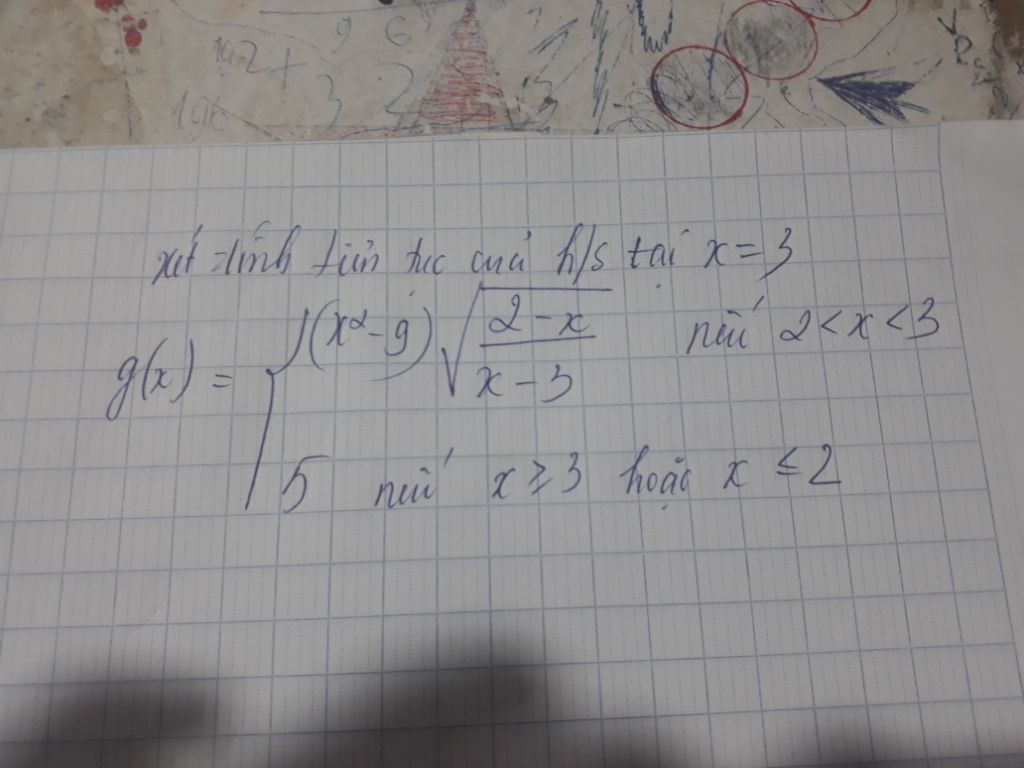 9 6
192 +
3 2 3
196
xét tính liên tục của h/s tại x = 3
g(x) = { (x² - 9) √((2 - x)/(x - 3)) nếu 2 < x < 3
5 nếu x ≥ 3 hoặc x ≤ 2